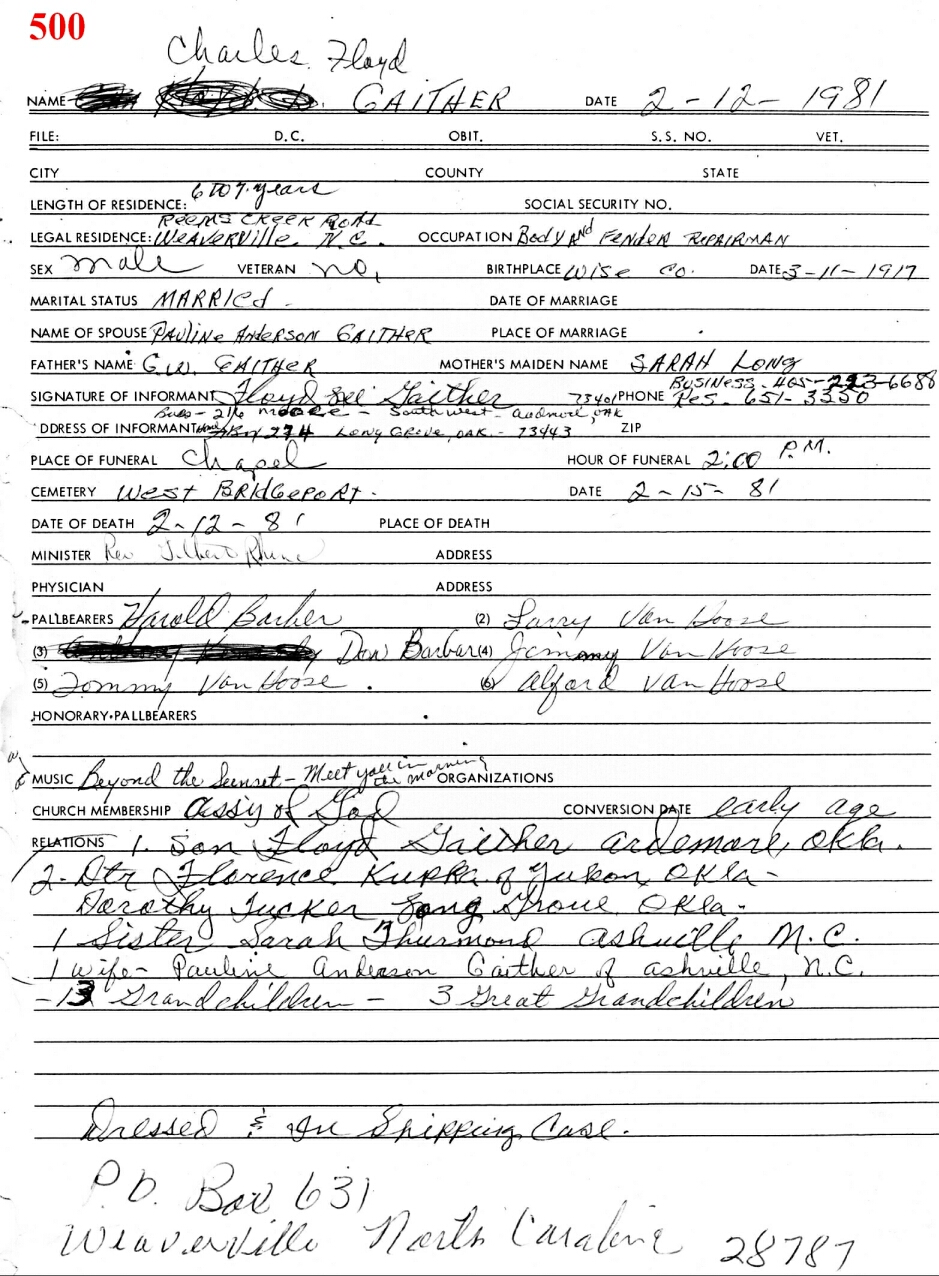 500
Charles Floyd
NAME GAITHER DATE 2-12-1981
FILE: D.C. OBIT. S.S. NO. VET.
CITY COUNTY STATE
LENGTH OF RESIDENCE: 6 to 7 years SOCIAL SECURITY NO.
REEMS CREEK ROAD
LEGAL RESIDENCE: WEAVERVILLE N.C. OCCUPATION Body AND FENDER REPAIRMAN
SEX male VETERAN no, BIRTHPLACE WISE CO. DATE 3-11-1917
MARITAL STATUS MARRIEd DATE OF MARRIAGE
NAME OF SPOUSE PAULINE ANDERSON GAITHER PLACE OF MARRIAGE
FATHER'S NAME G.W. GAITHER MOTHER'S MAIDEN NAME SARAH LONG
BUSINESS - 405-223-6688
SIGNATURE OF INFORMANT Floyd Lee Gaither 73401 PHONE RES. 651-3350
Bus- 216 moore - Southwest - Ardmore, OAK
DDRESS OF INFORMANT 274 LONG GROVE, OAK. - 73443 ZIP
PLACE OF FUNERAL Chapel HOUR OF FUNERAL 2:00 P.M.
CEMETERY WEST BRIDGEPORT. DATE 2-15-81
DATE OF DEATH 2-12-81 PLACE OF DEATH
MINISTER Rev ADDRESS
PHYSICIAN ADDRESS
PALLBEARERS Harold Barber (2) Larry Van Hoose
(3) Don Barbar (4) Jimmy Van Hoose
(5) Tommy Van Hoose. (6) Alford Van Hoose
HONORARY PALLBEARERS
MUSIC Beyond the Sunset - Meet you in the morning ORGANIZATIONS
CHURCH MEMBERSHIP Ass'y of God CONVERSION DATE early age
RELATIONS 1. Son Floyd Gaither Ardemore, Okla.
2- Dtr Florence Kupka of Yukon, Okla-
Dorothy Tucker Long Grove, Okla-
1 Sister Sarah Thurmond Ashville N.C.
1 wife- Pauline Anderson Gaither of Ashville, N.C.
-13 Grandchildren - 3 Great Grandchildren
Dressed & In Shipping Case.
P.O. Box 631
Weaverville North Caroline 28787